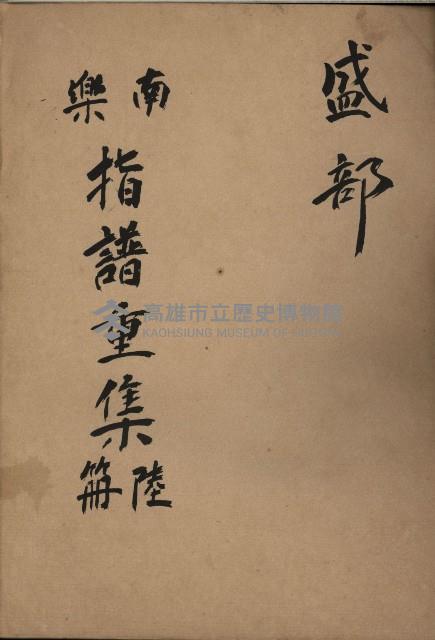 盛部
南樂指譜重集陸冊
高雄市立歷史博物館
KAOHSIUNG MUSEUM OF HISTORY